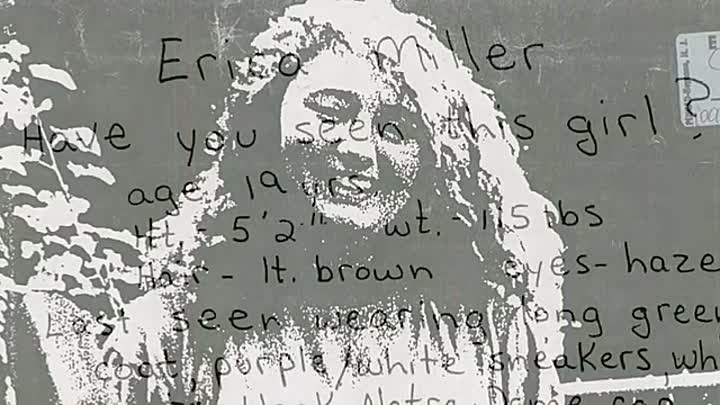 Erica Miller
Have you seen this girl?
age 19 yrs.
Ht. - 5'2" wt. - 115 lbs
Hair - lt. brown eyes - haze
Last seen wearing long green
coat, purple/white sneakers, whi
Notre Dame cap